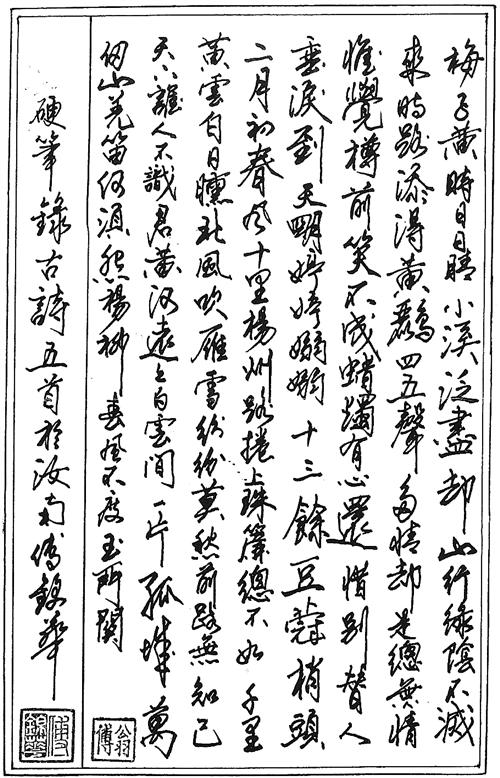 梅子黄時日日晴小溪泛盡却山行綠陰不減
來時路添得黄鸝四五聲多情却是總無情
惟覺樽前笑不成蠟燭有心還惜別替人
垂淚到天明娉娉嫋嫋十三餘豆蔻梢頭
二月初春風十里楊州路捲上珠簾總不如千里
黄雲白日曛北風吹雁雪紛紛莫愁前路無知己
天下誰人不識君黄河遠上白雲間一片孤城萬
仞山羌笛何須怨楊柳春風不度玉門關
硬筆錄古詩五首於汝南傅錦華
翁傅
傅錦華